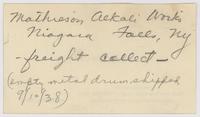 Mathieson Alkali Works
Niagara Falls, Ny
- freight collect -
(empty metal drum shipped
9/10/38)